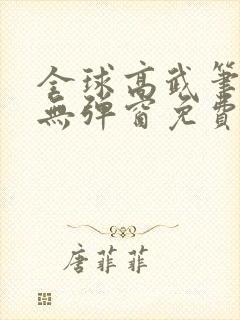 全球高武筆
無彈窗免費
唐菲菲